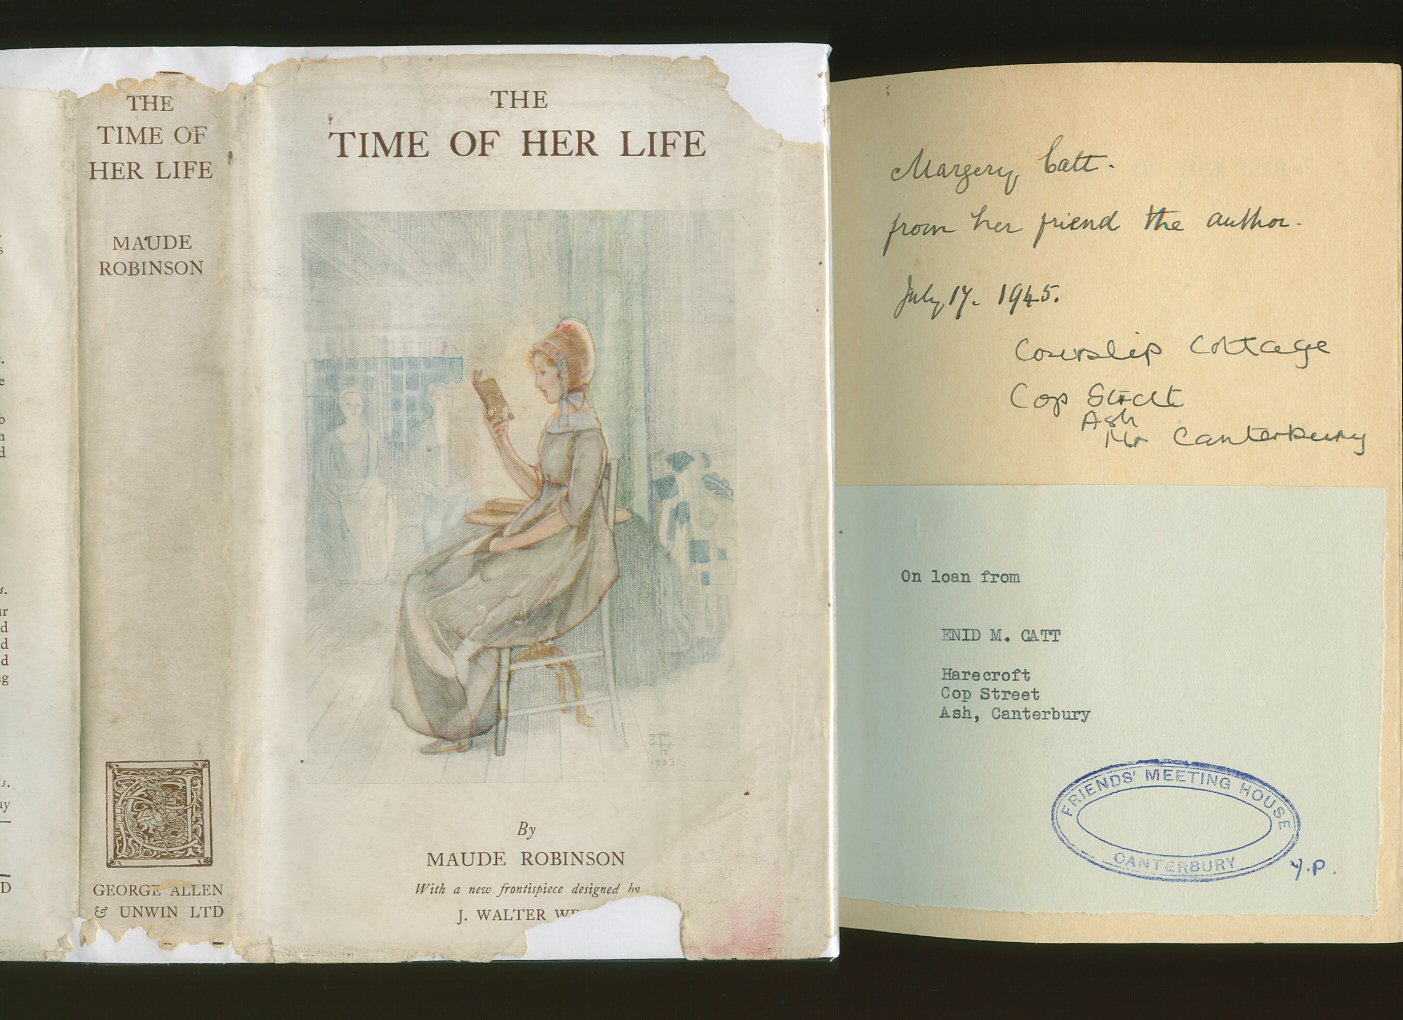 THE
TIME OF
HER LIFE
MAUDE
ROBINSON
GEORGE ALLEN
& UNWIN LTD
THE
TIME OF HER LIFE
By
MAUDE ROBINSON
With a new frontispiece designed by
J. WALTER
Margery Catt.
from her friend the author.
July 17. 1945.
Cowslip Cottage
Cop Street
Ash
Nr Canterbury
On loan from
ENID M. CATT
Harecroft
Cop Street
Ash, Canterbury
FRIENDS' MEETING HOUSE
CANTERBURY
Y.P.